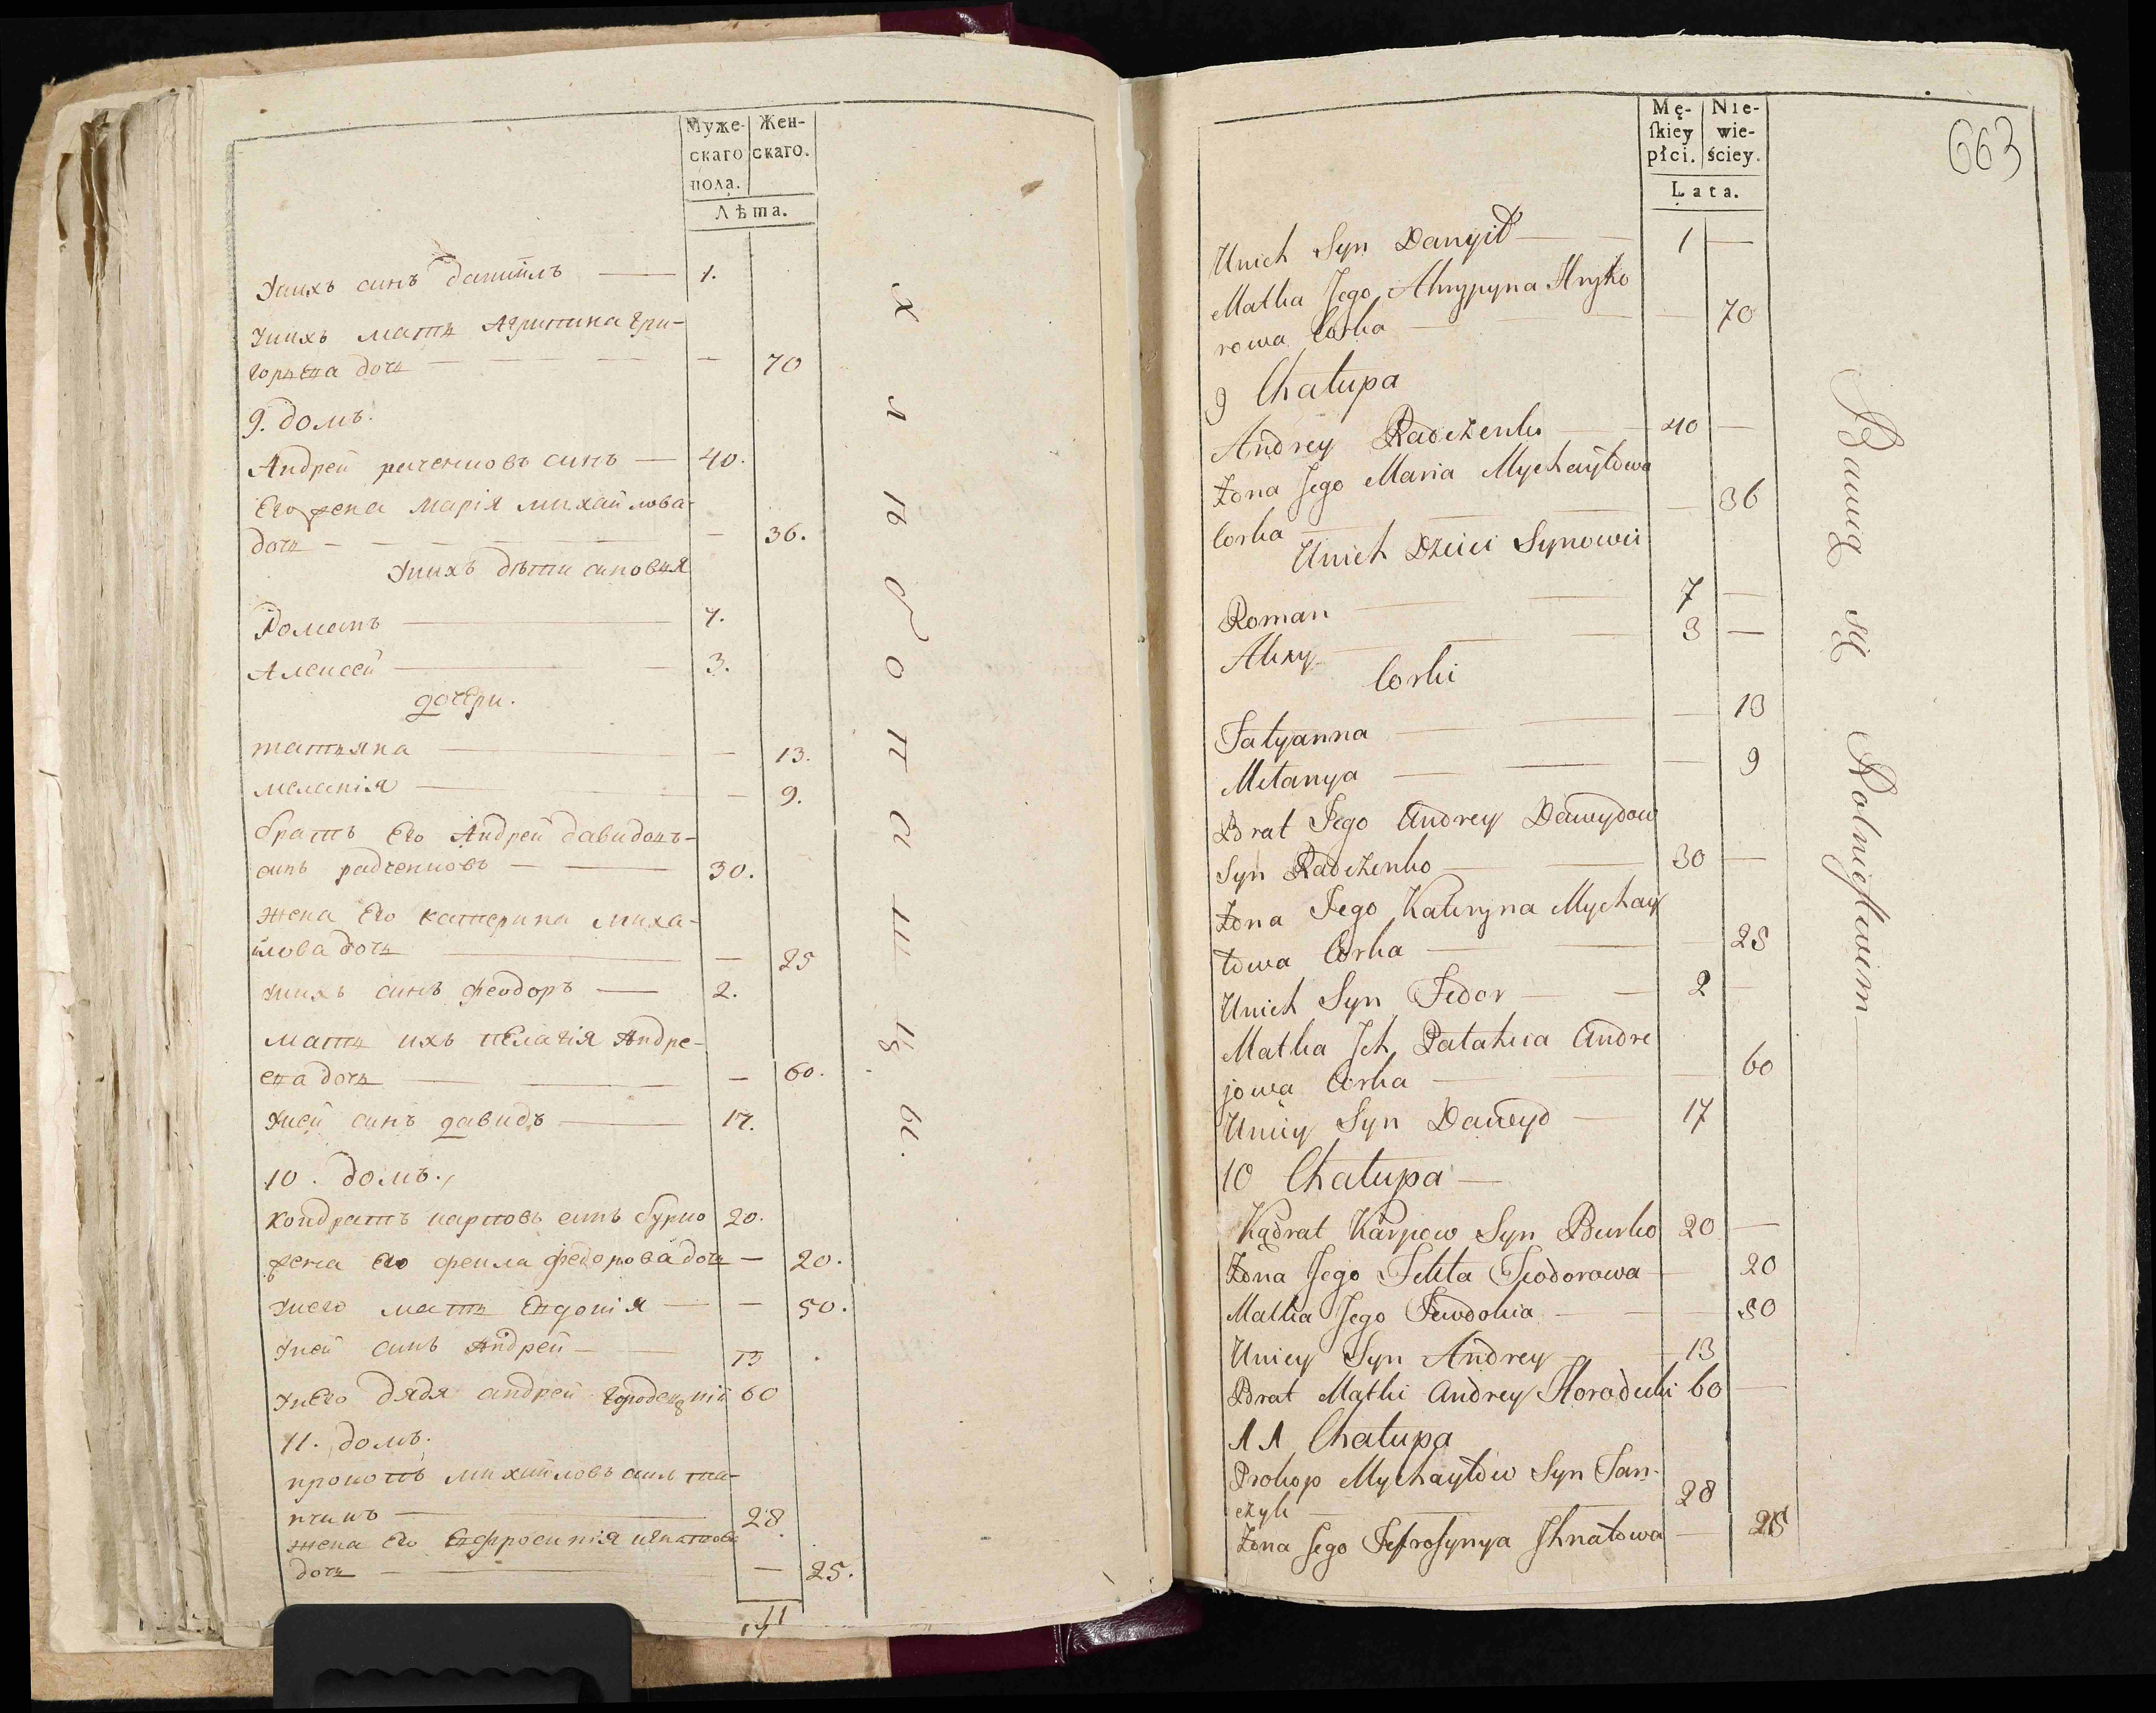 Муже- Жен-
скаго скаго.
пола.
Лѣта.
Унихъ синъ даніилъ — 1.
Унихъ мать Агрипина гри-
горьева дочь — — 70
9. домъ.
Андрей раченковъ синъ — 40.
Его жена Марія михайлова-
дочь — — 36.
Унихъ дѣти синовья
Романъ — 7.
Алексей — 3.
дочери.
татьяна — — 13.
меланія — — 9.
братъ Его Андрей давидовъ-
синъ радченковъ — 30.
жена Его катерина миха-
йлова дочь — — 25
унихъ синъ феодоръ — 2.
мать ихъ пелагія Андре-
ева дочь — — 60.
Уней синъ давидъ — 17.
10. домъ.
кондратъ карповъ синъ бурко 20.
жена его фекла федорова дочь — 20.
Унего мать Евдокія — — 50.
Уней синъ Андрей — 13
Унего дядя андрей городецкій 60
11. домъ.
прокопъ михайловъ синъ та-
нчикъ — 28.
жена Его Евфросинія игнатова
дочь — — 25.
11
хлѣбопашцы.
Mę- Nie-
ſkiey wie-
płci. ściey.
Lata.
663
Unich Syn Danyił — 1 —
Matka Jego Ahrypyna Hryho
rowa Corka — — 70
9 Chałupa
Andrey Radczenko — 40 —
Żona Jego Maria Mychayłowa
Corka — — 36
Unich Dzieci Synowie
Roman — 7 —
Alexy — 3 —
Corki
Tatyanna — — 13
Mełanya — — 9
Brat Jego Andrey Dawydow
Syn Radczenko — 30 —
Żona Jego Kateryna Mychay
łowa Corka — — 25
Unich Syn Fedor — 2 —
Matka Jch Pałaheia Andre
jowa Corka — — 60
Uniey Syn Dawyd — 17
10 Chałupa —
Kądrat Karpow Syn Burko 20 —
Żona Jego Tekla Teodorowa — 20
Matka Jego Jewdokia — — 50
Uniey Syn Andrey — 13
Brat Matki Andrey Horodecki 60 —
11 Chałupa
Prokop Mychayłow Syn Tan-
czyk — 28
Żona Jego Jefrosynya Jhnatowa — 25
Bawią się Rolnictwem